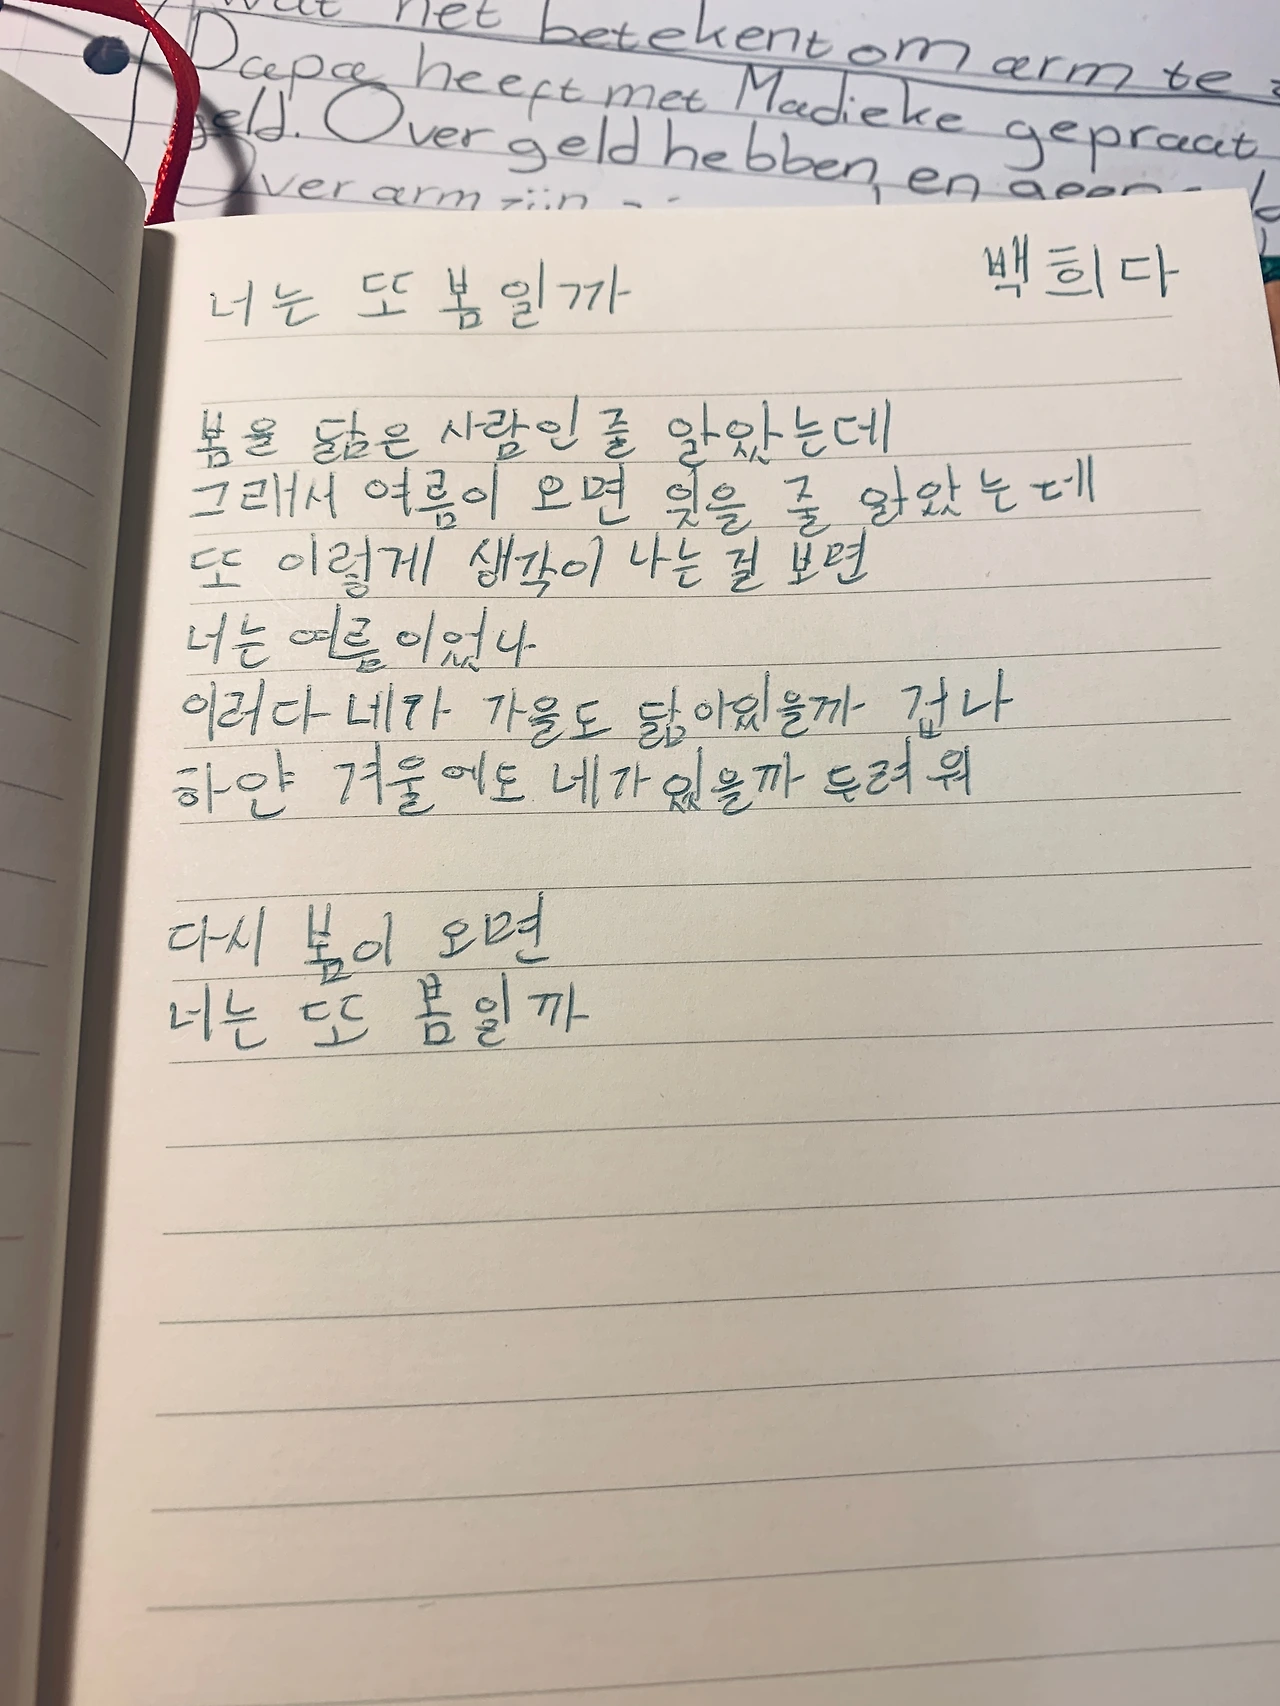 het betekent om arm te
Papa heeft met Madieke gepraat
geld. Over geld hebben, en geen
Over arm zijn
너는 또 봄일까 백희다
봄을 닮은 사람인 줄 알았는데
그래서 여름이 오면 잊을 줄 알았는데
또 이렇게 생각이 나는 걸 보면
너는 여름이었나
이러다 네가 가을도 닮아있을까 겁나
하얀 겨울에도 네가 있을까 두려워
다시 봄이 오면
너는 또 봄일까